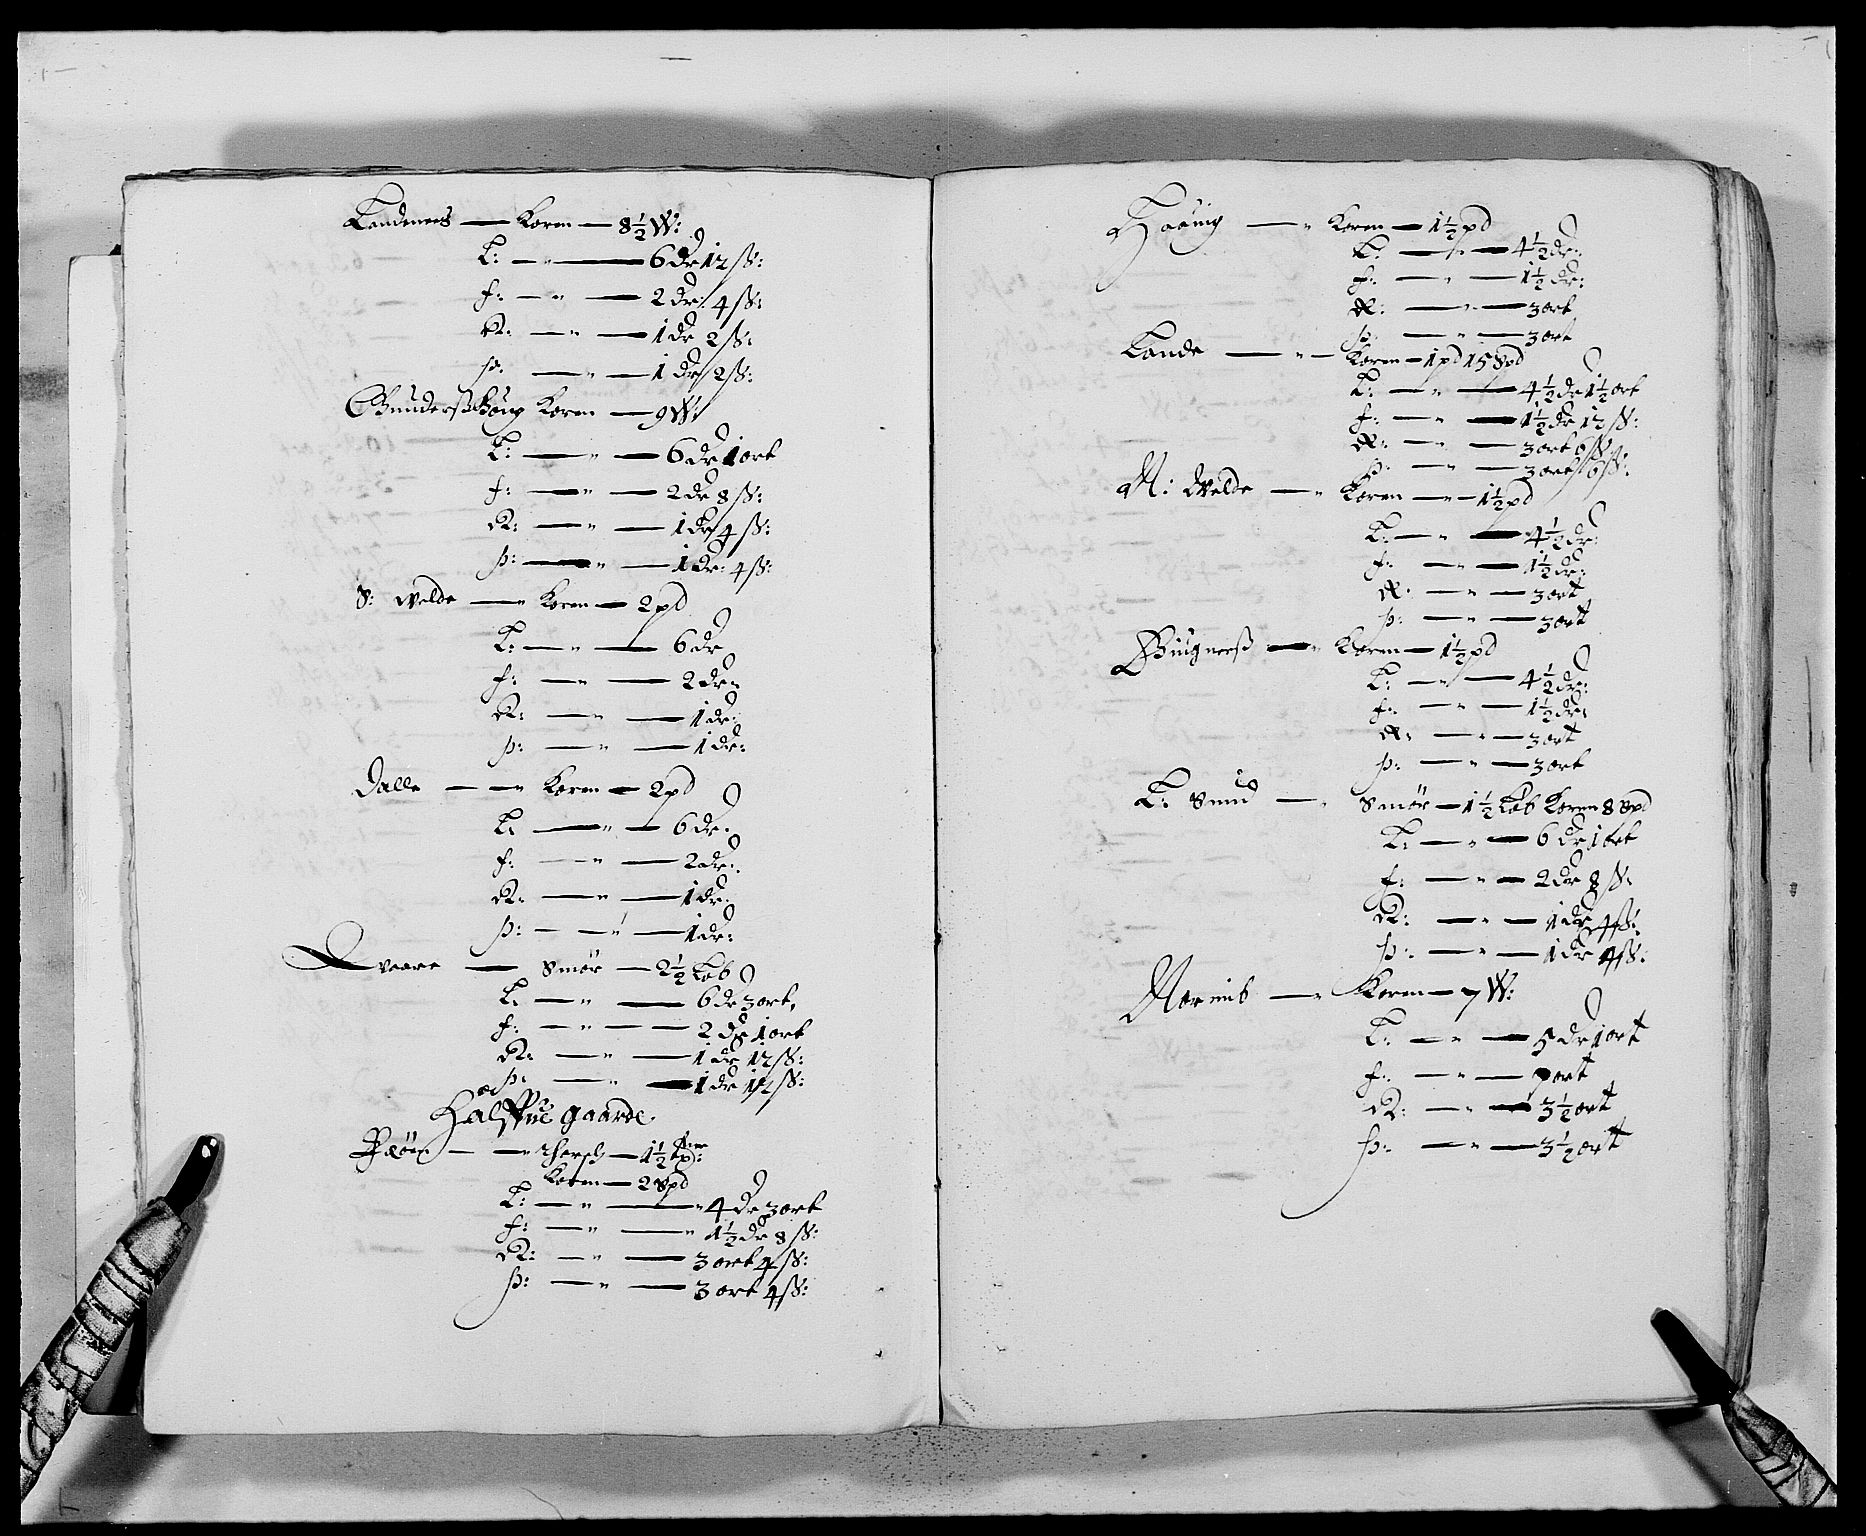 Landnees — Koren — 8½ W:
L: — 6 dr 12 ß:
f: — 2 dr: 4 ß:
R: — 1 dr 2 ß:
p: — 1 dr 2 ß:
Gunderß Koren — 9 W:
L: — 6 dr 1 ort
f: — 2 dr 8 ß:
R: — 1 dr 4 ß:
p: — 1 dr: 4 ß:
S: welde — Koren — 2 pd
L: — 6 dr
f: — 2 dr:
R: — 1 dr:
p: — 1 dr:
Dalle — Koren — 2 pd
L: — 6 dr:
f: — 2 dr:
R: — 1 dr:
p: — 1 dr:
Smör — 2½ Løb
L: — 6 dr 3 ort
f: — 2 dr 1 ort
R: — 1 dr 12 ß:
p: — 1 dr 12 ß:
Halffue gaarde
— 1½
Koren — 2 Spd
L: — 4 dr 3 ort
f: — 1½ dr 8 ß:
R: — 3 ort 4 ß:
p: — 3 ort 4 ß:
Haaing — Koren — 1½ pd
L: — 4½ dr:
f: — 1½ dr:
R: — 3 ort
p: — 3 ort
Lande — Koren — 1 pd 15 Spd
L: — 4½ dr 1½ ort
f: — 1½ dr 12 ß:
R: — 3 ort 6 ß
p: — 3 ort 6 ß:
N: Welde — Koren — 1½ pd
L: — 4½ dr:
f: — 1½ dr:
R: — 3 ort
p: — 3 ort
Koren — 1½ pd
L: — 4½ dr:
f: — 1½ dr:
R: — 3 ort
p: — 3 ort
L: Sund — Smör — 1½ Løb Koren 8 Spd
L: — 6 dr 1 ort
f: — 2 dr 8 ß:
R: — 1 dr 4 ß:
p: — 1 dr 4 ß:
Koren — 7 W:
L: — 5 dr 1 ort
f: — 7 ort
R: — 3½ ort
p: — 3½ ort